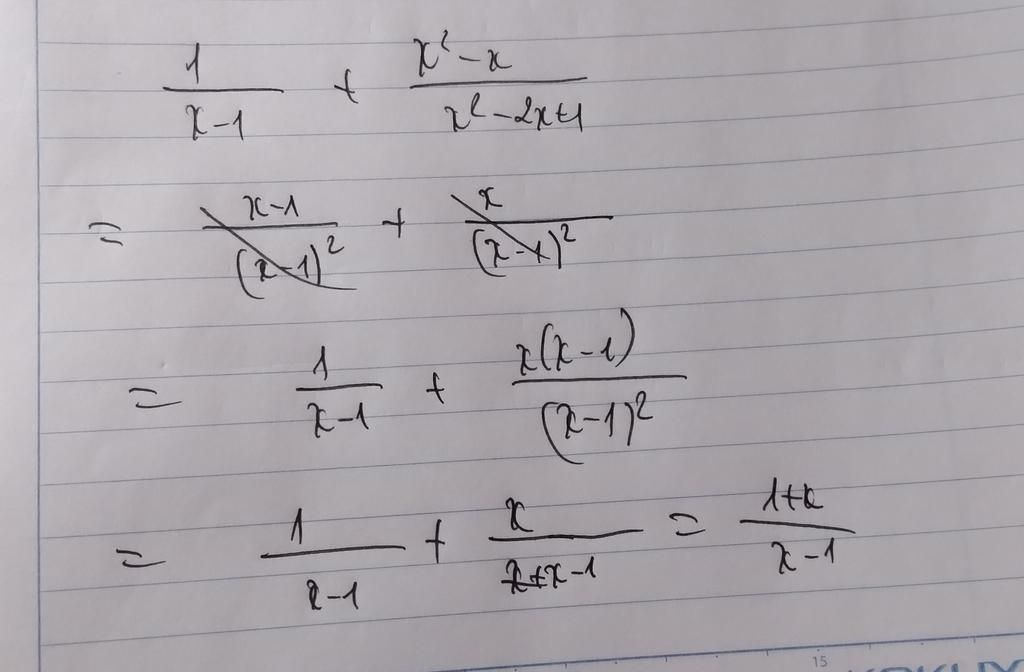 1/(x-1) + (x²-x)/(x²-2x+1)
= (x-1)/(x-1)² + x/(x-1)²
= 1/(x-1) + x(x-1)/(x-1)²
= 1/(x-1) + x/(x-1) = (1+x)/(x-1)
15